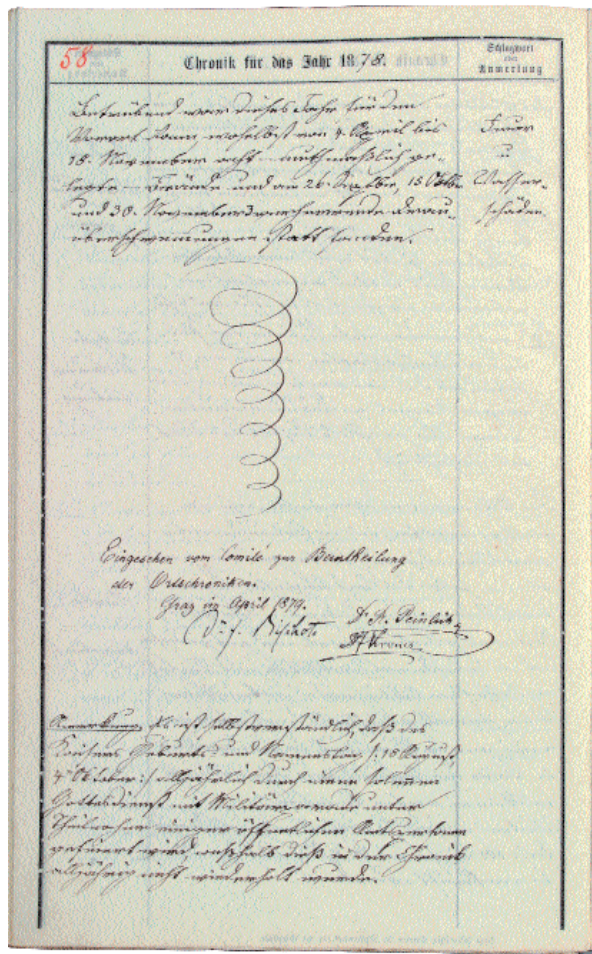 58
Chronik für das Jahr 1878.
Schlagwort
oder
Anmerkung
Betrübend war dieses Jahr für den
Vorort Kann woselbst von 4. April bis
18. November acht – muthmaßlich ge-
legte – Brände und am 26. 15. Oktb.
und 30. November verheerende Drau-
überschwemmungen statt fanden.
Feuer
u
Wasser-
schäden.
Eingesehen vom Comité zur Beurtheilung
der Ortschroniken.
Graz im April 1879.
Dr. J. Bischof
D. R. Peinlich
Krones
Anmerkung. Es ist selbstverständlich, daß des
Kaisers Geburts- und Namenstag /: 18 August
4 Oktober :/ alljährlich durch einen solennen
Gottesdienst mit Militärparade unter
Theilnahme einiger öffentlichen Amtspersonen
gefeiert wird, weßhalb dieß in der Chronik
alljährig nicht wiederholt wurde.